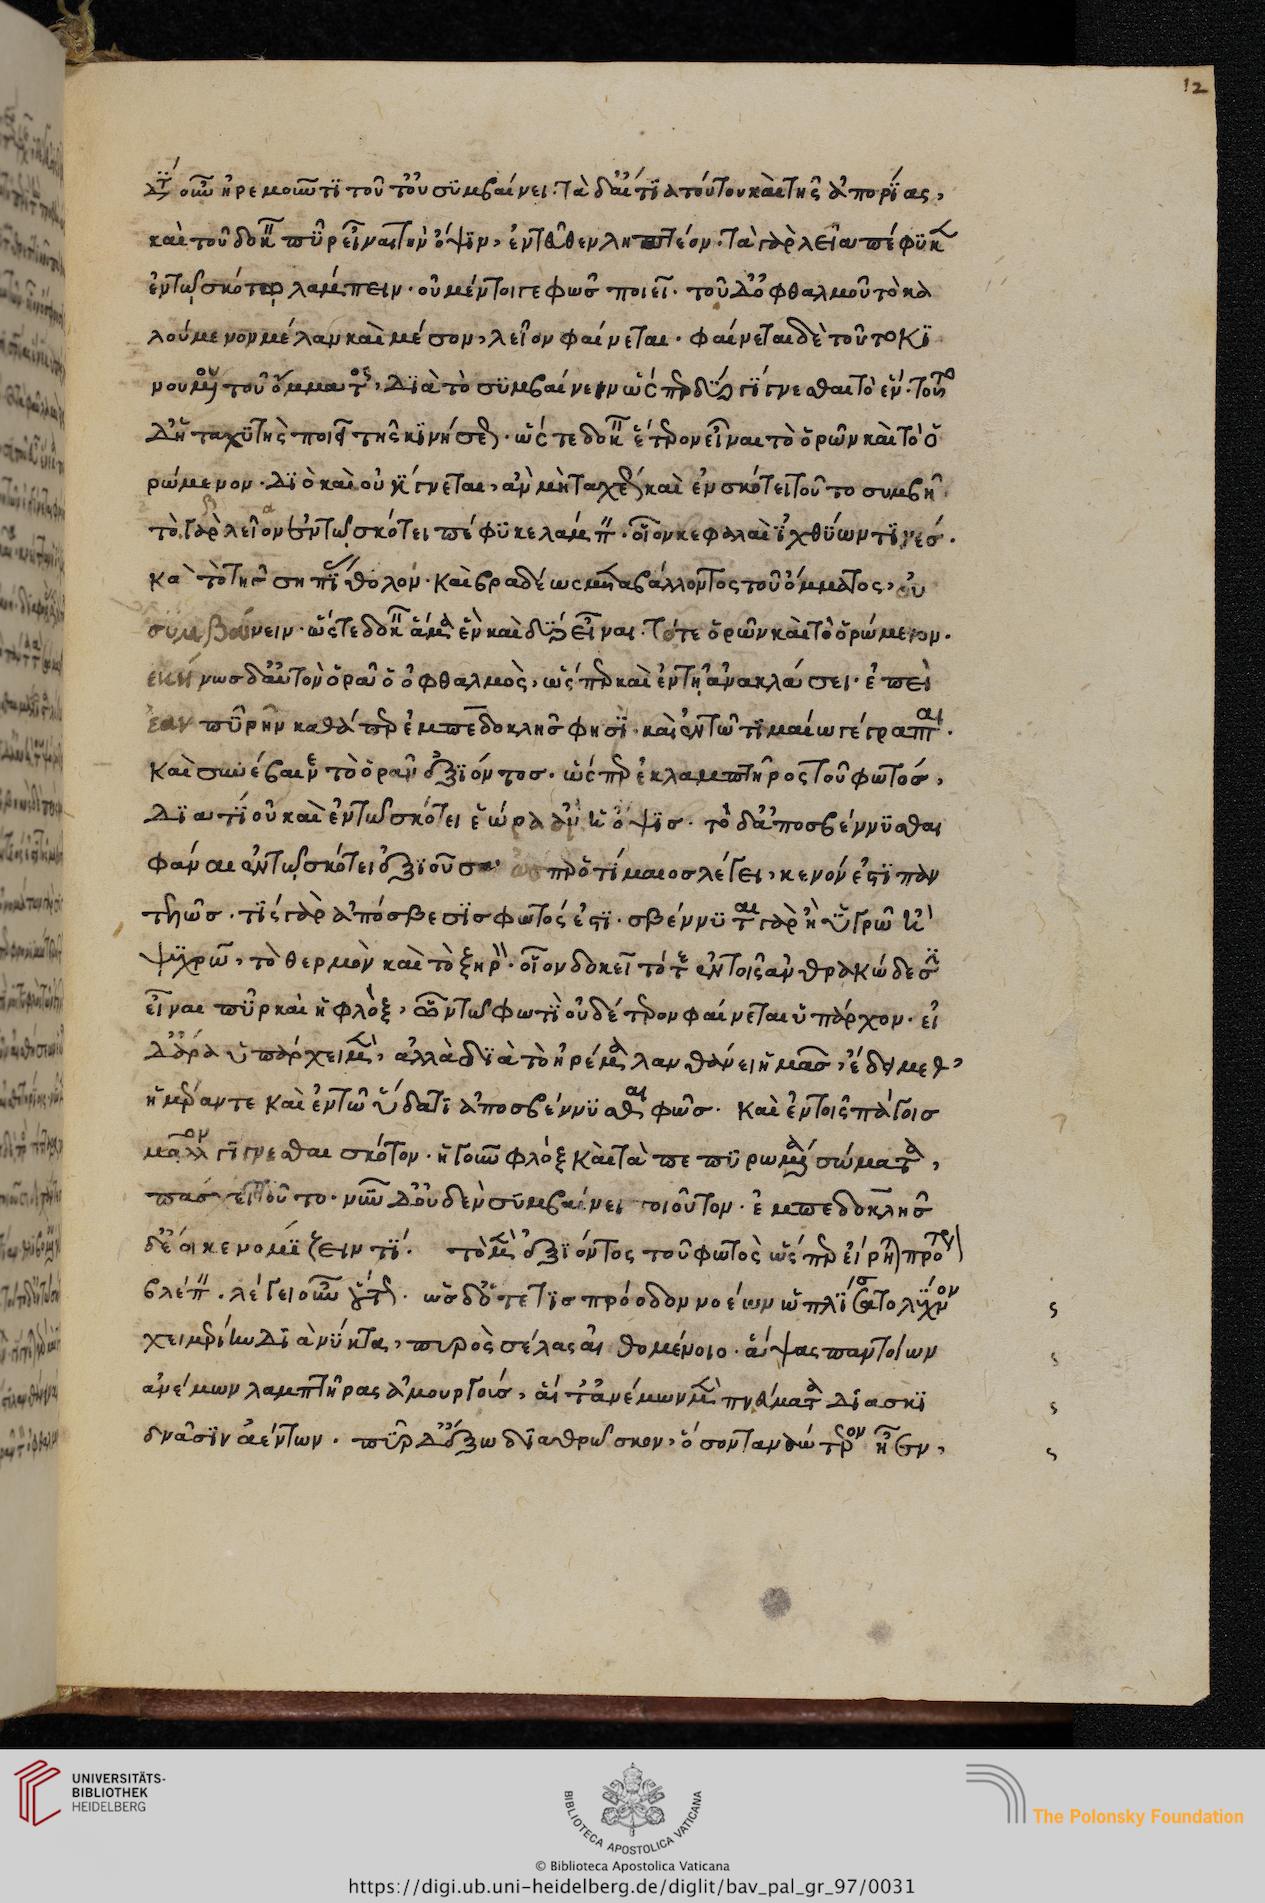 12
διὰ τί οὖν ἠρεμοῦντι τοῦτ' οὐ συμβαίνει. τὰ δ' αἴτια τούτου καὶ τῆς ἀπορίας,
καὶ τοῦ δοκεῖν πῦρ εἶναι τὴν ὄψιν, ἐντεῦθεν ληπτέον. τὰ γὰρ λεῖα πέφυκεν
ἐν τῷ σκότει λάμπειν. οὐ μέντοι γε φῶς ποιεῖ. τοῦ δ' ὀφθαλμοῦ τὸ κα
λούμενον μέλαν καὶ μέσον, λεῖον φαίνεται. φαίνεται δὲ τοῦτο κι
νουμένου τοῦ ὄμματος, διὰ τὸ συμβαίνειν ὥσπερ δύο γίγνεσθαι τὸ ἕν. τοῦτο
δ' ἡ ταχυτὴς ποιεῖ τῆς κινήσεως. ὥστε δοκεῖν ἕτερον εἶναι τὸ ὁρῶν καὶ τὸ ὁ
ρώμενον. διὸ καὶ οὐ γίγνεται, ἂν μὴ ταχέως καὶ ἐν σκότει τοῦτο συμβῇ.
τὸ γὰρ λεῖον ἐν τῷ σκότει πέφυκε λάμπειν. οἷον κεφαλαὶ ἰχθύων τινές.
καὶ τὸ τῆς σηπίας θολόν. καὶ βραδέως μεταβάλλοντος τοῦ ὄμματος, οὐ
συμβαίνειν. ὥστε δοκεῖν ἅμα ἓν καὶ δύο εἶναι. τό τε ὁρῶν καὶ τὸ ὁρώμενον.
ἐκείνως δ' αὐτὸν ὁρᾷ ὁ ὀφθαλμὸς, ὥσπερ καὶ ἐν τῇ ἀνακλάσει. ἐπεὶ
ἐὰν πῦρ ἦν καθάπερ ἐμπεδοκλῆς φησὶ. καὶ ἐν τῷ τιμαίω γέγραπται.
καὶ συνέβαινεν τὸ ὁρᾶν ἐξιόντος. ὥσπερ ἐκ λαμπτῆρος τοῦ φωτός,
διὰ τί οὐ καὶ ἐν τῷ σκότει ἑώρα ἂν ἡ ὄψις. τὸ δ' ἀποσβέννυσθαι
φάναι ἐν τῷ σκότει ἐξιοῦσαν ὥσπερ ὁ τίμαιος λέγει, κενόν ἐστι παν
τελῶς. τίς γὰρ ἀπόσβεσις φωτός ἐστι. σβέννυται γὰρ ἢ ὑγρῶ ἢ
ψυχρῶ, τὸ θερμὸν καὶ τὸ ξηρὸν. οἷον δοκεῖ τό τε ἐν τοῖς ἀνθρακώδεσιν
εἶναι πῦρ καὶ ἡ φλὸξ, ὧν τῷ φωτὶ οὐδέτερον φαίνεται ὑπάρχον. εἰ
δ' ἄρα ὑπάρχει μὲν, ἀλλὰ διὰ τὸ ἠρέμα λανθάνει ἡμᾶς, ἔδει μεθ'
ἡμέραν τε καὶ ἐν τῷ ὕδατι ἀποσβέννυσθαι φῶς. καὶ ἐν τοῖς πάγοις
μᾶλλον γίγνεσθαι σκότον. ἡ γοῦν φλὸξ καὶ τὰ πεπυρωμένα σώματα,
πάσχει τοῦτο. νῦν δ' οὐδὲν συμβαίνει τοιοῦτον. ἐμπεδοκλῆς
δ' ἔοικε νομίζειν τί. τὸ μὲν ἐξιόντος τοῦ φωτὸς ὥσπερ εἴρηται πρότερον
βλέπειν. λέγει οὖν οὕτως. ὡς δ' ὅτε τις πρόοδον νοέων ὡπλίσατο λύχνον
χειμερίην διὰ νύκτα, πυρὸς σέλας αἰθομένοιο. ἅψας παντοίων
ἀνέμων λαμπτῆρας ἀμουργούς, αἵ τ' ἀνέμων μὲν πνεύματα διασκι
δνᾶσιν ἀέντων. πῦρ δ' ἔξω διαθρῶσκον, ὅσον ταναώτερον ἦεν,
UNIVERSITÄTS-
BIBLIOTHEK
HEIDELBERG
BIBLIOTECA APOSTOLICA VATICANA
The Polonsky Foundation
© Biblioteca Apostolica Vaticana
https://digi.ub.uni-heidelberg.de/diglit/bav_pal_gr_97/0031